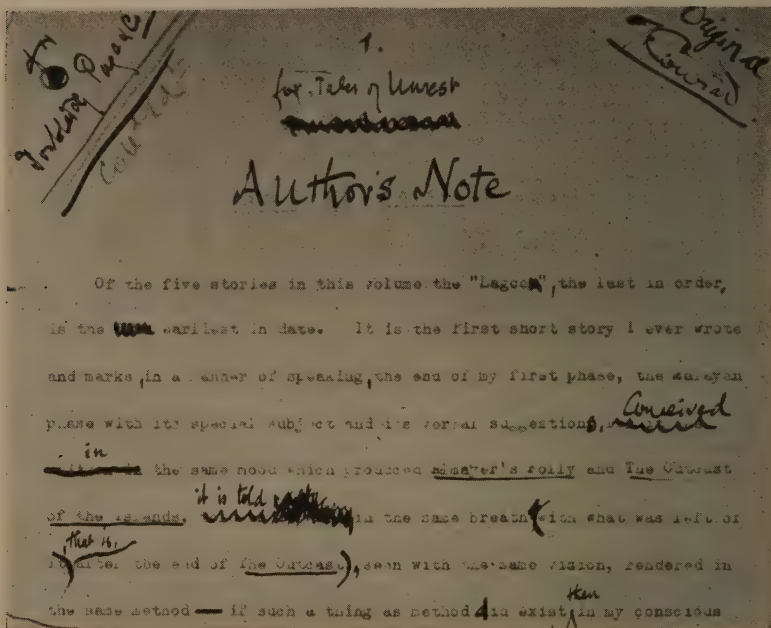 Original
Conrad
1.
for Tales of Unrest
Author's Note
Of the five stories in this volume the "Lagoon", the last in order,
is the earliest in date. It is the first short story I ever wrote
and marks, in a manner of speaking, the end of my first phase, the Malayan
phase with its special subject and its verbal suggestions. Conceived
in the same mood which produced Almayer's Folly and The Outcast
of the Islands, it is told in the same breath (with what was left of
it, that is, after the end of The Outcast), seen with the same vision, rendered in
the same method — if such a thing as method did exist then in my conscious